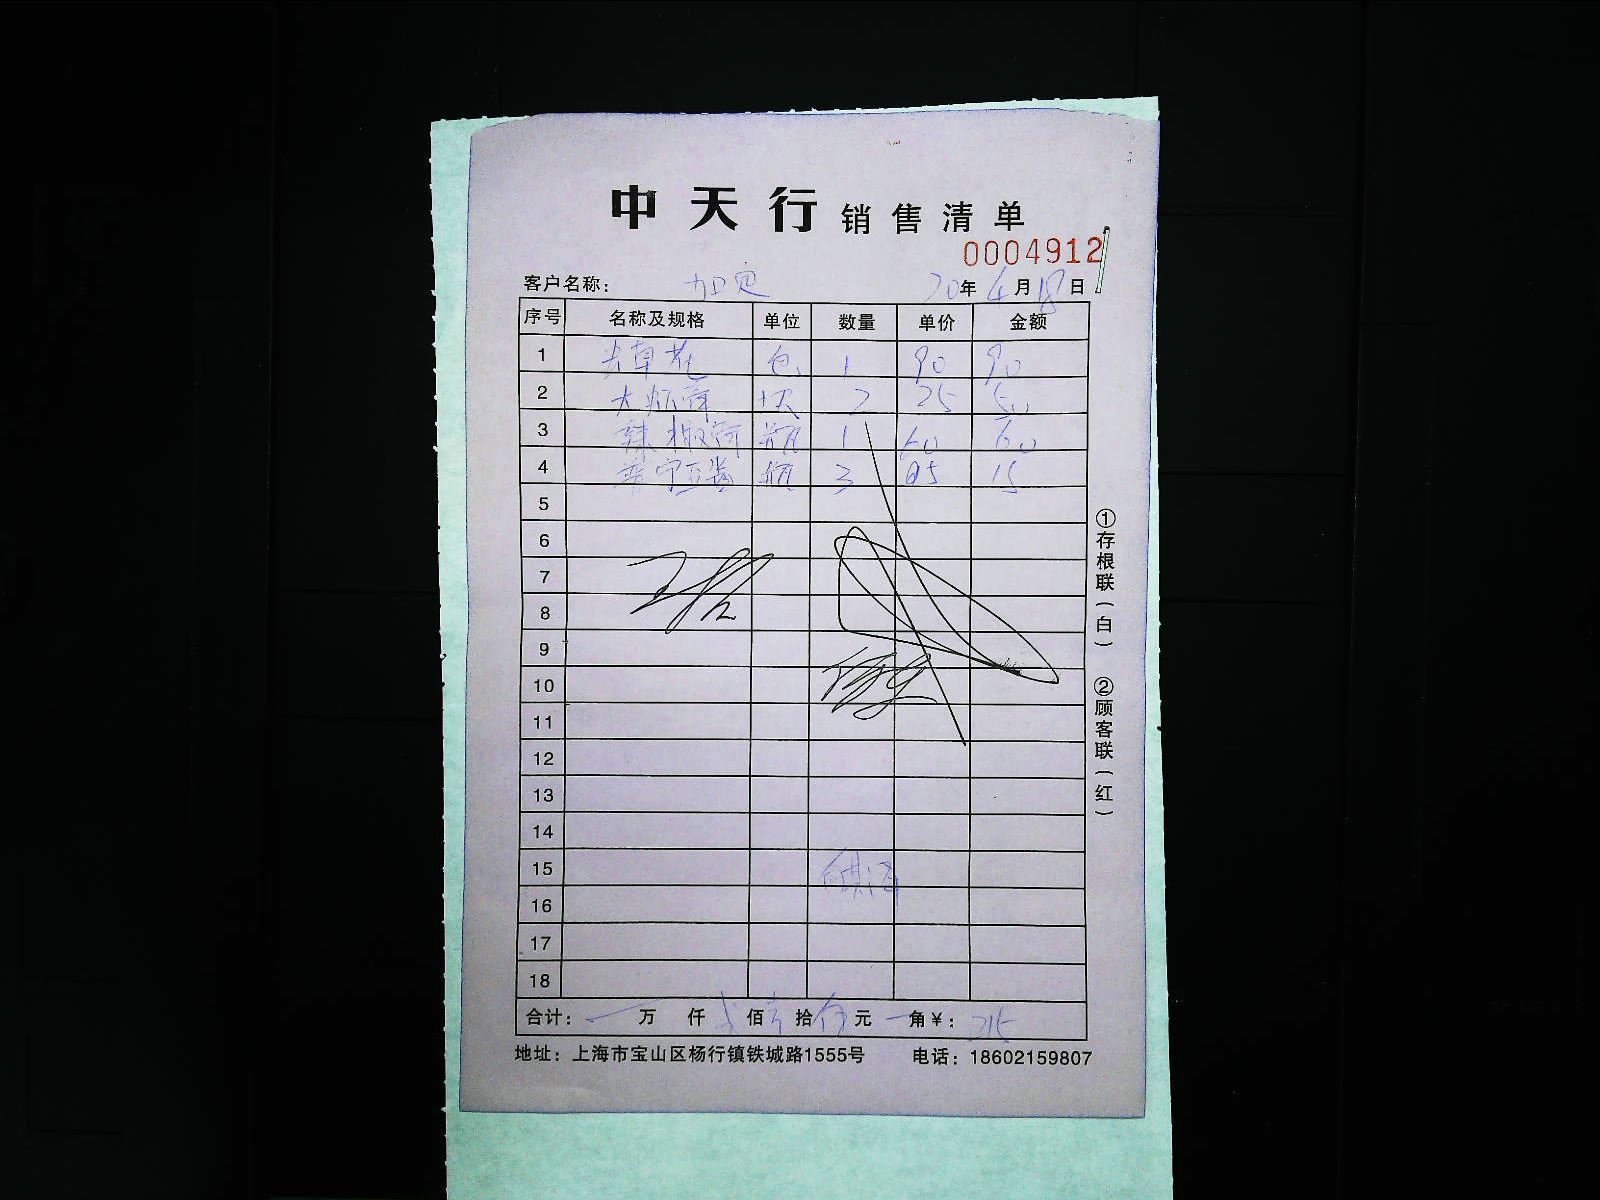 中天行 销售清单
0004912
客户名称： 加定 20年4月18日
序号 名称及规格 单位 数量 单价 金额
1 虫草花 包 1 90 90
2 大 2 25 50
3 辣椒 瓶 1 60 60
4 普宁豆酱 瓶 3 05 15
5
6
7
8
9
10
11
12
13
14
15
16
17
18
合计： 万 仟 佰 拾 元 角￥： 215
地址：上海市宝山区杨行镇铁城路1555号 电话：18602159807
①存根联（白） ②顾客联（红）